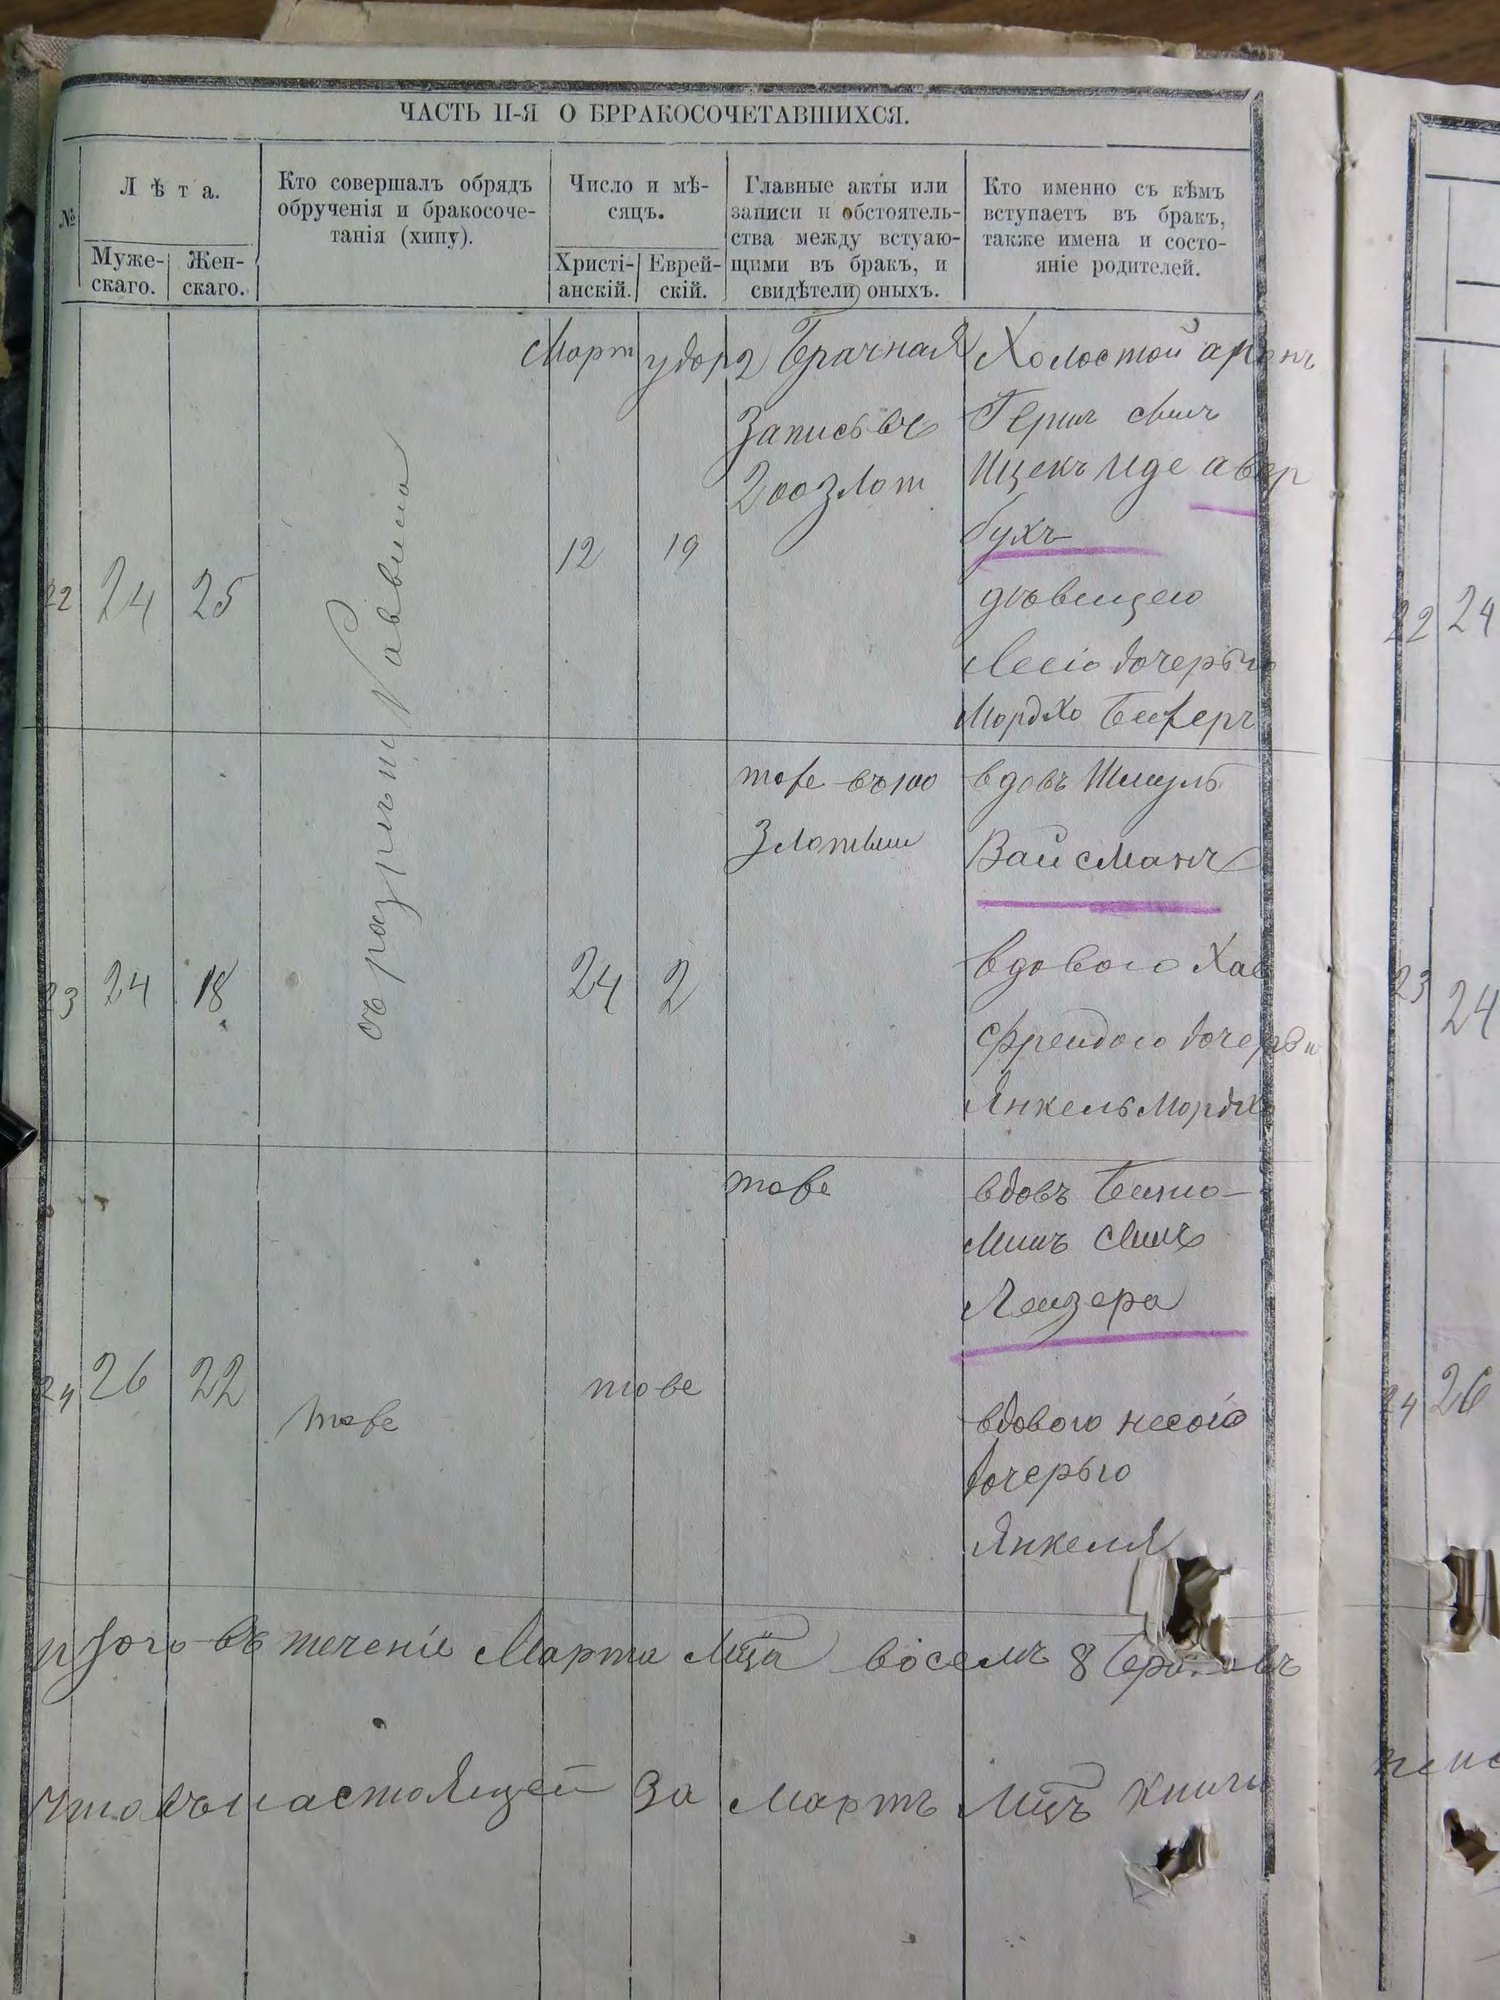 ЧАСТЬ II-Я О БРРАКОСОЧЕТАВШИХСЯ.
№
Лѣта.
Муже-
скаго.
Жен-
скаго.
Кто совершалъ обрядъ
обрученія и бракосоче-
танія (хипу).
Число и мѣ-
сяцъ.
Христі-
анскій.
Еврей-
скій.
Главные акты или
записи и обстоятель-
ства между встуаю-
щими въ бракъ, и
свидѣтели оныхъ.
Кто именно съ кѣмъ
вступаетъ въ бракъ,
также имена и состо-
яніе родителей.
22
24
25
съ разрѣш Раввина
Март
12
19
Брачная
Запись въ
200 злот
Холостой аронъ
Герш
Ицекъ Иде авер
бухъ
дѣвицею
дочерью
Мордко
23
24
18
24
2
тоже въ 100
Злотыхъ
вдовъ Шмуль
Вайсманъ
вдовою Хае
Фрейдою дочерью
Янкель Мордко
24
26
22
тоже
тоже
тоже
вдовъ Бенио-
минъ
Лейзера
вдовою несою
дочерью
Янкеля
итого въ теченіе Марта Мца восемъ 8 браковъ
Что въ настоящей за Мартъ Мцъ книги
22
24
23
24
24
26